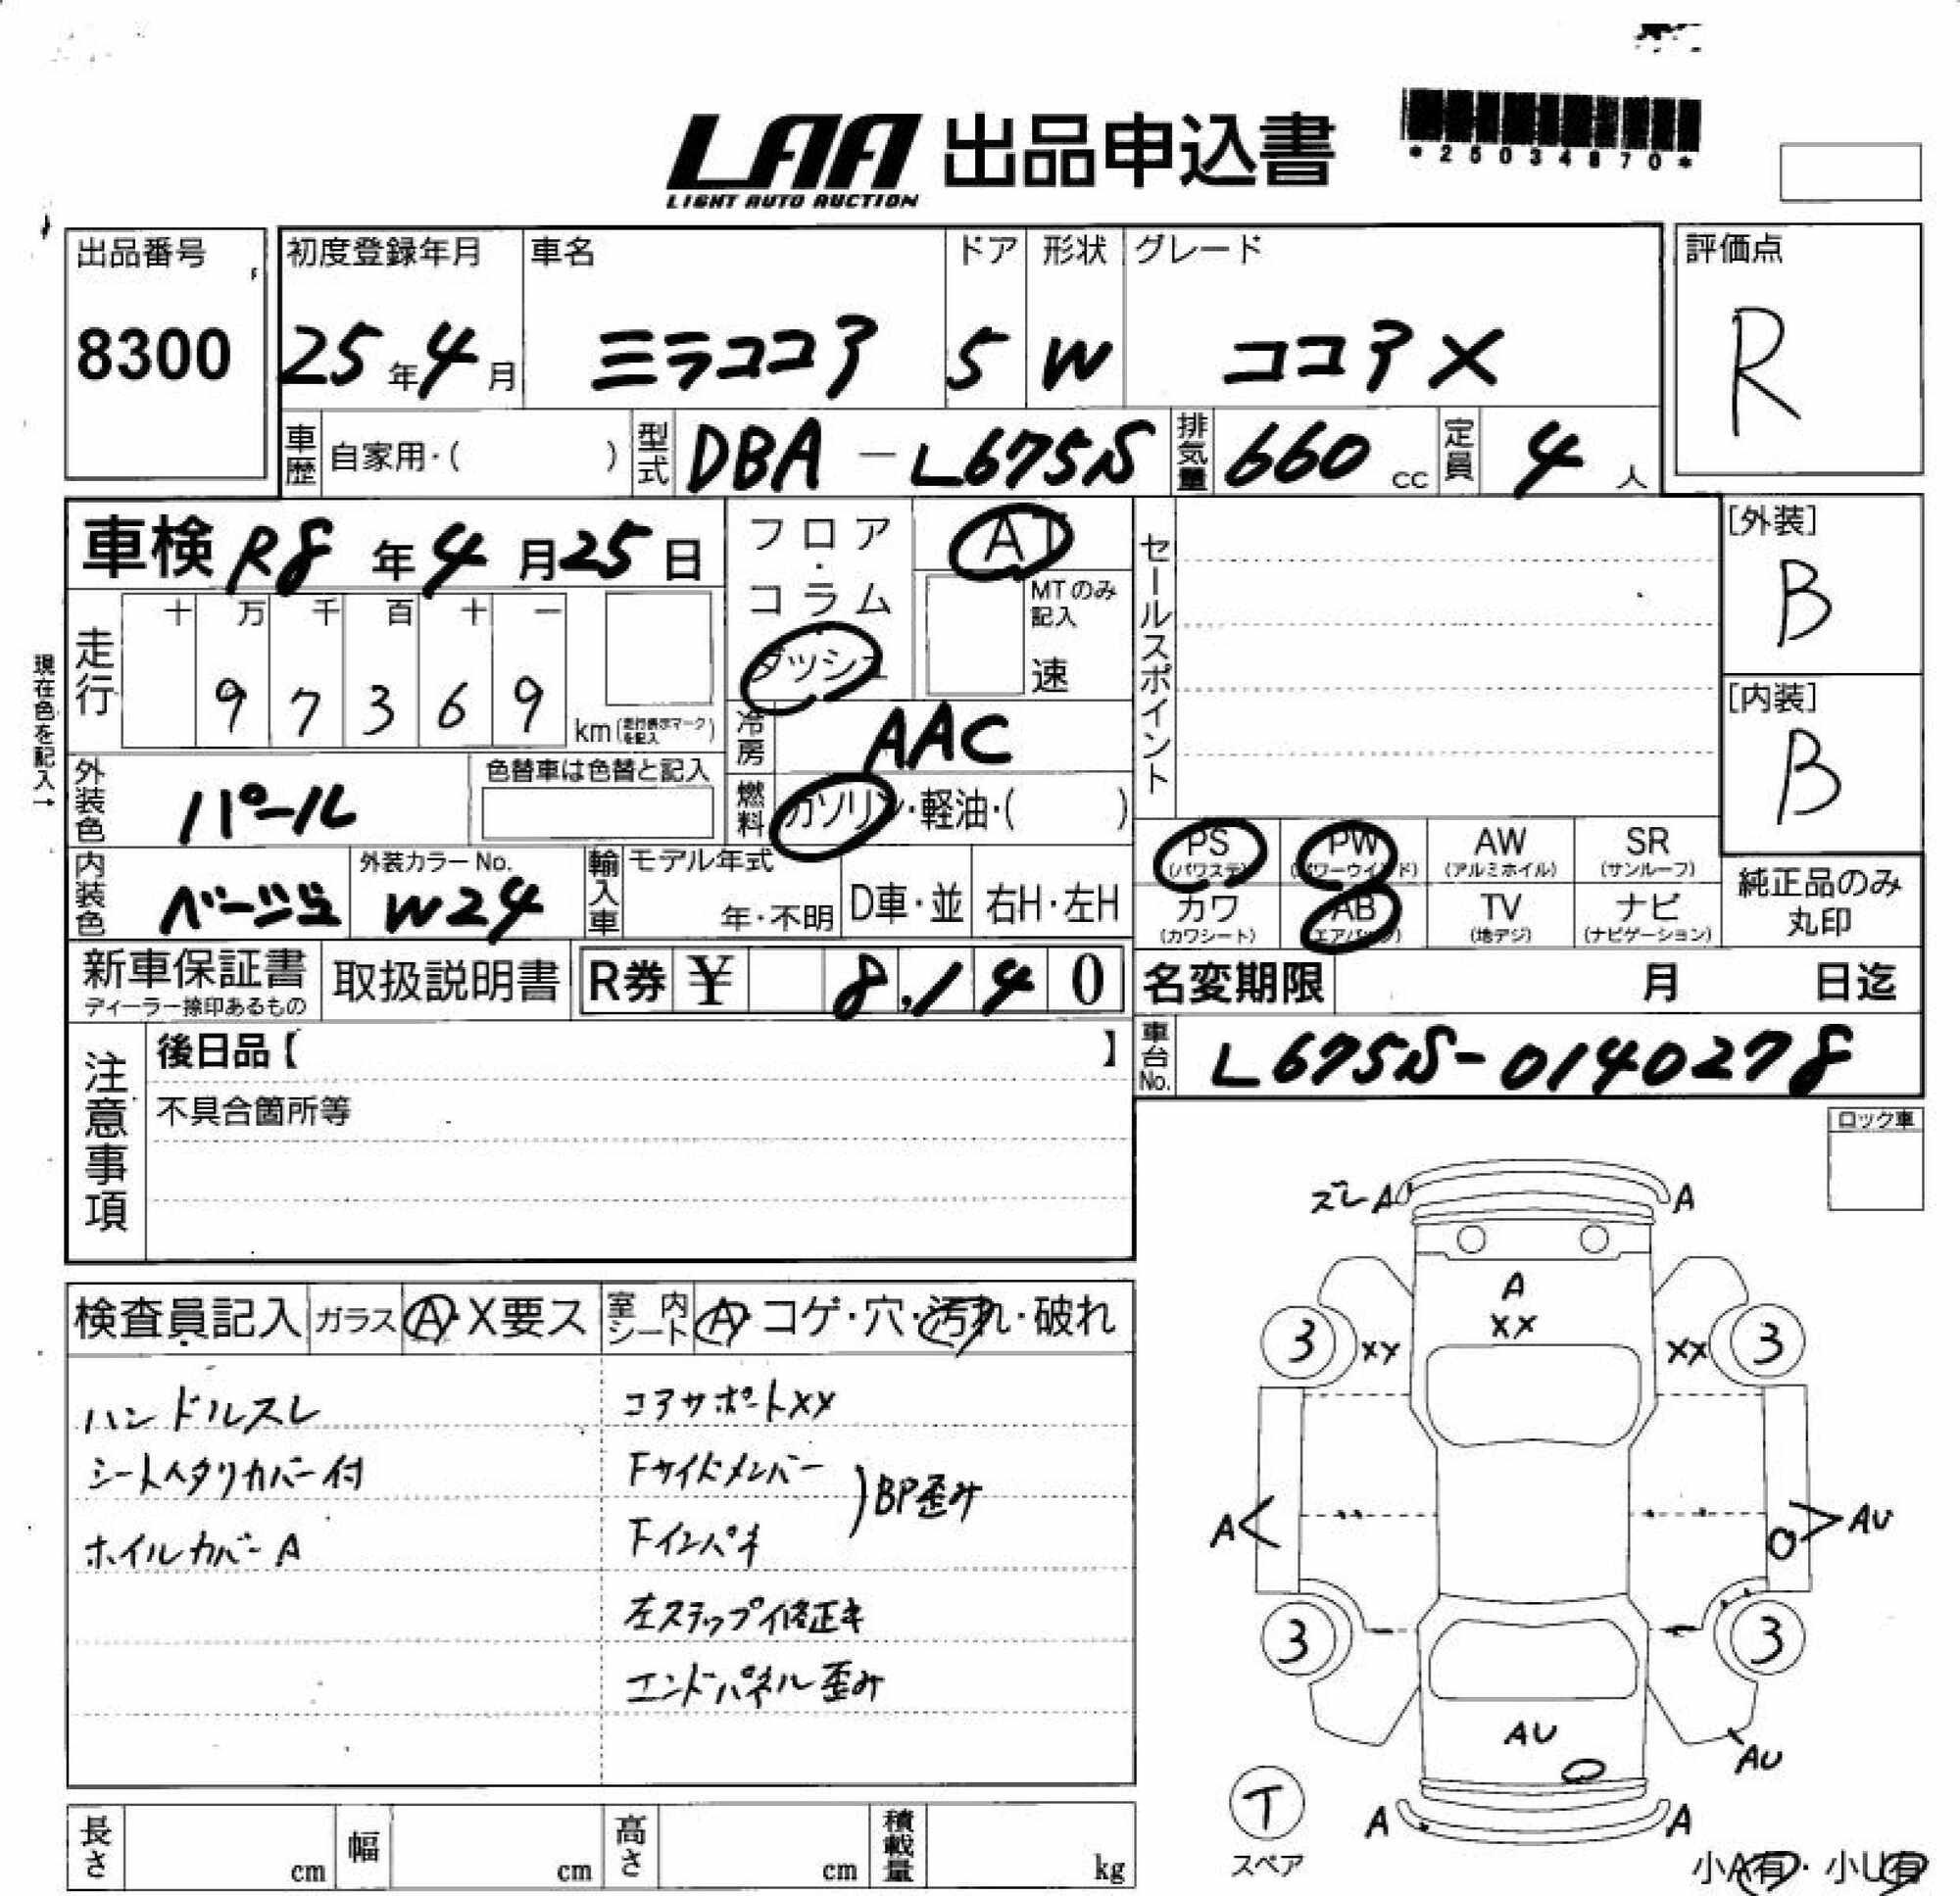 LAA 出品申込書
LIGHT AUTO AUCTION
*25034870*
出品番号
8300
初度登録年月
25年4月
車名
ミラココア
ドア
5
形状
W
グレード
ココアX
評価点
R
車歴 自家用・( )
型式 DBA-L675S
排気量 660 cc
定員 4 人
車検 R8年4月25日
フロア・コラム・ダッシュ
AT
MTのみ記入
速
セールスポイント
[外装]
B
[内装]
B
現在色を記入→
走行
十 万 千 百 十 一
9 7 3 6 9
km(走行表示マークを記入)
冷房 AAC
外装色 パール
色替車は色替と記入
燃料 ガソリン・軽油・( )
PS (パワステ) PW (パワーウインド) AW (アルミホイル) SR (サンルーフ)
カワ (カワシート) AB (エアバッグ) TV (地デジ) ナビ (ナビゲーション)
純正品のみ丸印
内装色 ベージュ
外装カラーNo.
W24
輸入車
モデル年式
年・不明
D車・並
右H・左H
新車保証書
ディーラー捺印あるもの
取扱説明書
R券 ¥ 8,140
名変期限 月 日迄
車台No. L675S-0140278
注意事項
後日品【 】
不具合箇所等
ロック車
検査員記入 ガラス A・X要ス 室内シート A・コゲ・穴・汚れ・破れ
ハンドルスレ
シートヘタリカバー付
ホイルカバーA
コアサポートXX
Fサイドメンバー
Fインパネ
BP歪み
左ステップ修正キ
エンドパネル歪み
ズレ A A
A
XX
3 XX XX 3
A AU
3 3
AU
AU
T
スペア
A A
小A有・小U有
長さ cm 幅 cm 高さ cm 積載量 kg